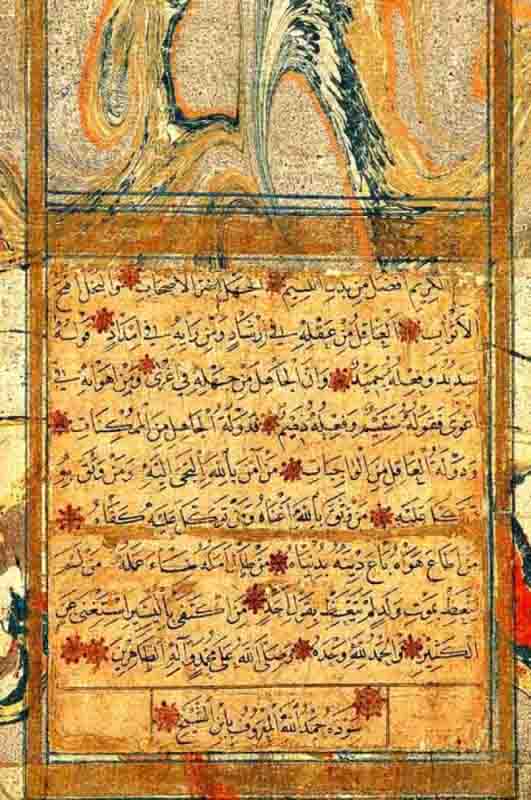 الكريم افضل من يدي اللئيم الجهل اضر الاصحاب والبخل اقبح
الأثواب العاقل من عقله في ارشاد ومن رأيه في امداد قوله
سديد وفعله حميد وان الجاهل من جهله في ومن اهوائه في
فقوله سقيم وفعله ذميم فدولة الجاهل من الممكنات
ودولة العاقل من الواجبات من آمن بالله التجى اليه ومن وثق به
توكل عليه من وثق بالله اغناه ومن توكل عليه كفاه
من اطاع هواه باع دينه بدنياه من طال امله ساء عمله من لم
يتعظ بموت ولد لم يتعظ بقول احد من اكتفى باليسير استغنى عن
الكثير والحمد لله وحده وصلى الله على محمد وآله الطاهرين
سوده حمد الله المعروف بابن الشيخ